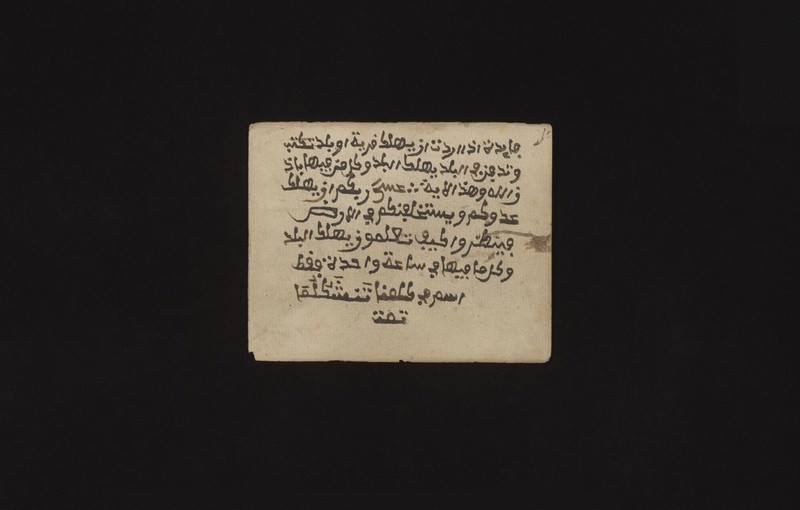 فايدة اذا اردت ان يهلك قرية او بلد تكتب
وتدفن في البلد يهلك البلد وكل من فيها باذ
ن الله وهذا الاية عسى ربكم ان يهلك
عدوكم ويستخلفكم في الارض
فينظر كيف تعلمون يهلك البلد
وكل ما فيها في ساعة واحدة
اسم في
تمت